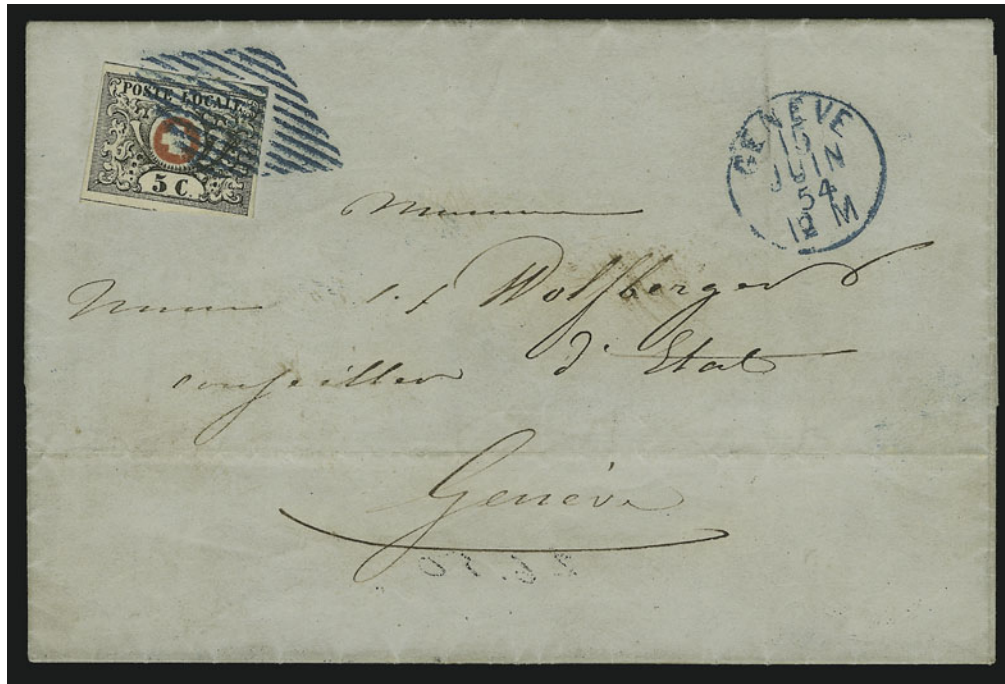 POSTE LOCALE
5 C.
GENÈVE
15
JUIN
54
12 M
Monsieur
Monsieur Wolfsberger
conseiller d'Etat
Genève